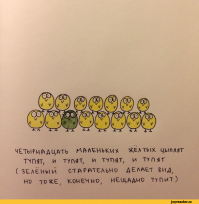 ЧЕТЫРНАДЦАТЬ МАЛЕНЬКИХ ЖЁЛТЫХ ЦЫПЛЯТ
ТУПЯТ, И ТУПЯТ, И ТУПЯТ, И ТУПЯТ
(ЗЕЛЕНЫЙ СТАРАТЕЛЬНО ДЕЛАЕТ ВИД,
НО ТОЖЕ, КОНЕЧНО, НЕЩАДНО ТУПИТ.)
joyreactor.cc